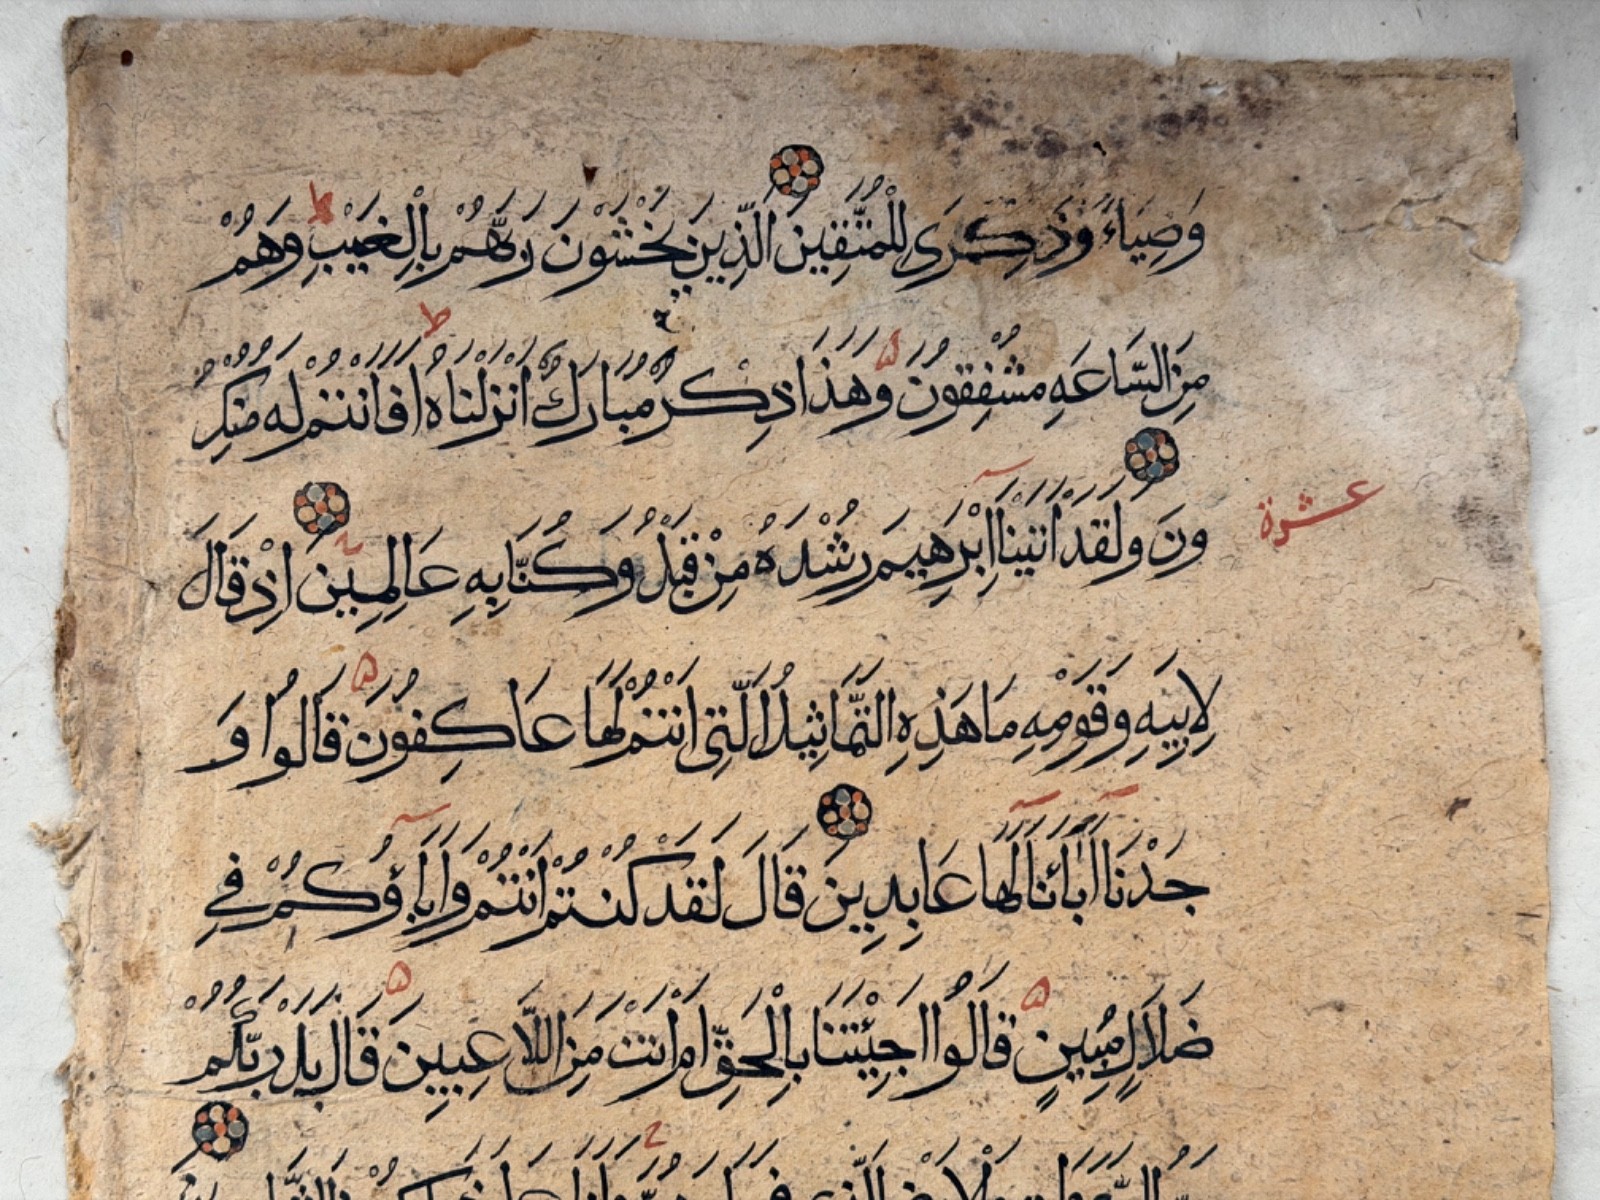 وَضِيَاءً وَذِكْرَى لِلْمُتَّقِينَ الَّذِينَ يَخْشَوْنَ رَبَّهُمْ بِالْغَيْبِ وَهُمْ
مِنَ السَّاعَةِ مُشْفِقُونَ وَهَذَا ذِكْرٌ مُبَارَكٌ أَنْزَلْنَاهُ أَفَأَنْتُمْ لَهُ مُنْكِرُ
ونَ وَلَقَدْ اٰتَيْنَا إِبْرَهِيمَ رُشْدَهُ مِنْ قَبْلُ وَكُنَّا بِهِ عَالِمِينَ إِذْ قَالَ
عشرة
لِأَبِيهِ وَقَوْمِهِ مَا هَذِهِ التَّمَاثِيلُ الَّتِي أَنْتُمْ لَهَا عَاكِفُونَ قَالُوا وَ
جَدْنَا اٰبَائَنَا لَهَا عَابِدِينَ قَالَ لَقَدْ كُنْتُمْ أَنْتُمْ وَاٰبَاؤُكُمْ فِي
ضَلَالٍ مُبِينٍ قَالُوا اَجِئْتَنَا بِالْحَقِّ اَمْ اَنْتَ مِنَ اللَّاعِبِينَ قَالَ بَلْ رَبُّكُمْ